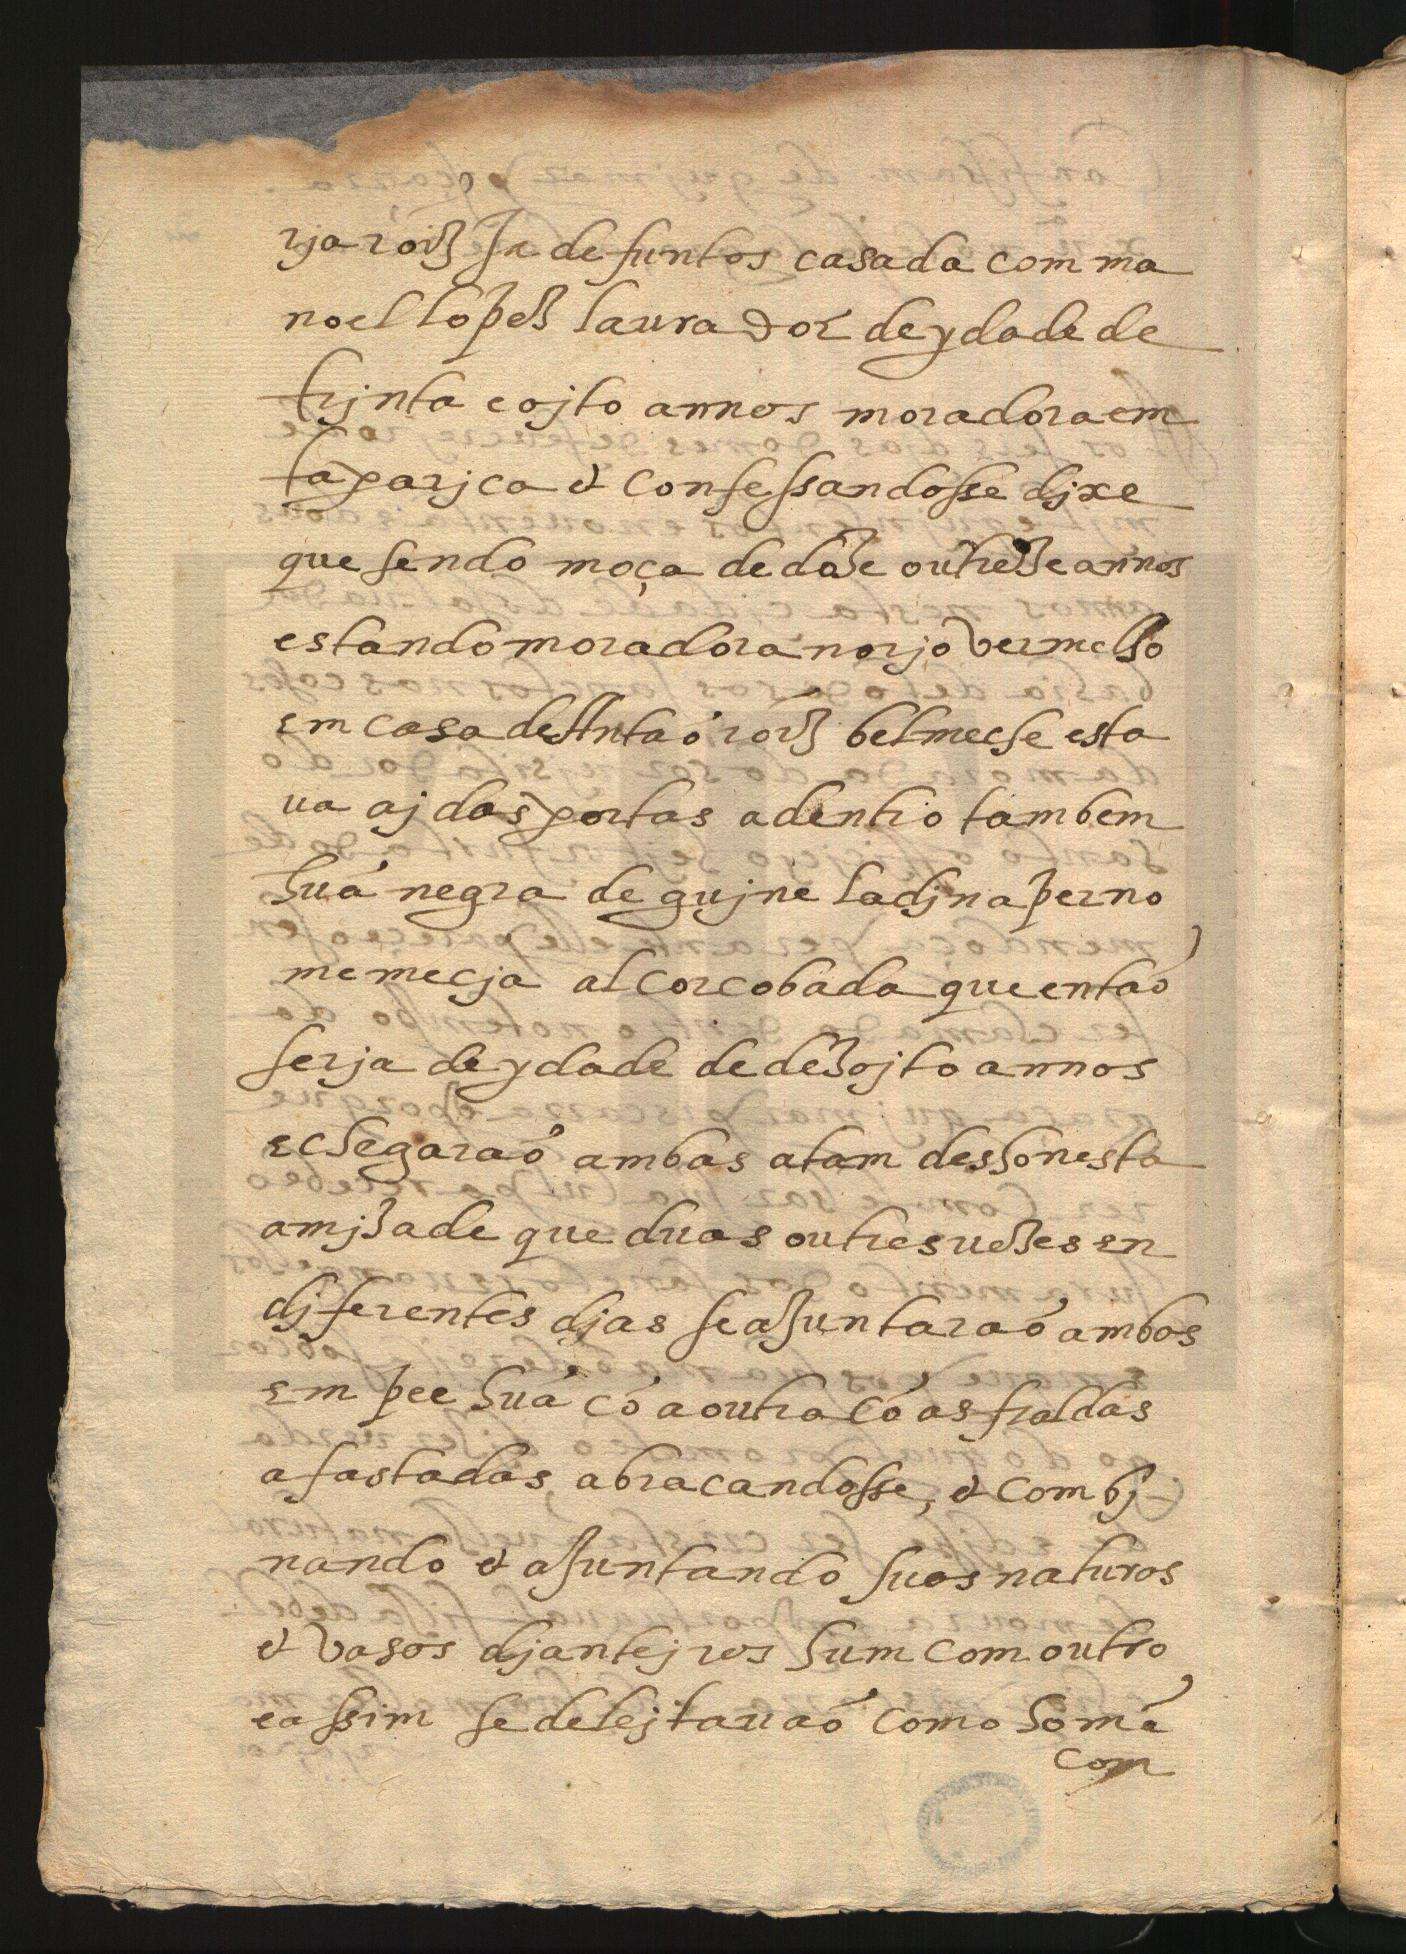 rja roiz Ja defuntos casada com ma
noel lopez laurador de ydade de
trjnta e ojto annos moradora em
taparjca & confessandosse djxe
que sendo moça de doze ou treze annos
estando moradora no rjo vermelho
em casa de Antaõ roiz belmeche esta
ua aj das portas adentro tambem
huã negra de gujne ladjna per no
me mecja alcorcobada que entaõ
serja de ydade de dezojto annos
e chegaraõ ambas a tam deshonesta
amjzade que duas ou tres uezes en
djferentes djas se aJuntaraõ ambas
em pee huã cõ a outra cõ as fraldas
afastadas abracandosse, & combj-
nando & aJuntando suas naturas
& vasos djantejros hum com outro
e assim se delejtauaõ como homẽ
com